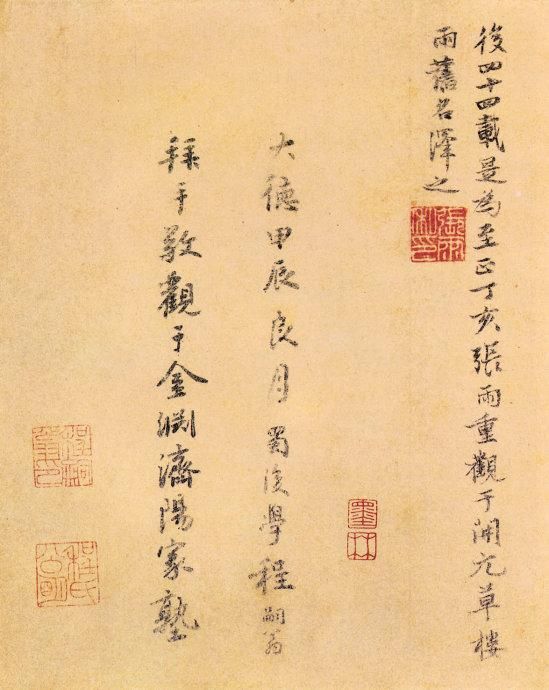 後四十四載是為至正丁亥張雨重觀于開元草樓
雨舊名澤之
張雨私印
大德甲辰良月蜀後學程嗣翁
拜手敬觀于金淵濟陽家塾
墨林
程氏